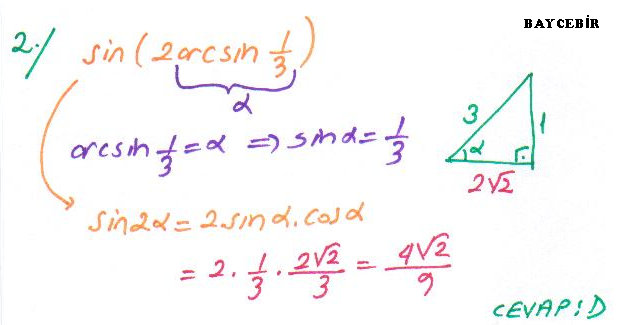 BAY CEBİR
2./ sin(2arcsin 1/3)
α
arcsin 1/3 = α ⇒ sinα = 1/3
3
α
1
2√2
sin2α = 2sinα.cosα
= 2 . 1/3 . 2√2/3 = 4√2/9
CEVAP: D